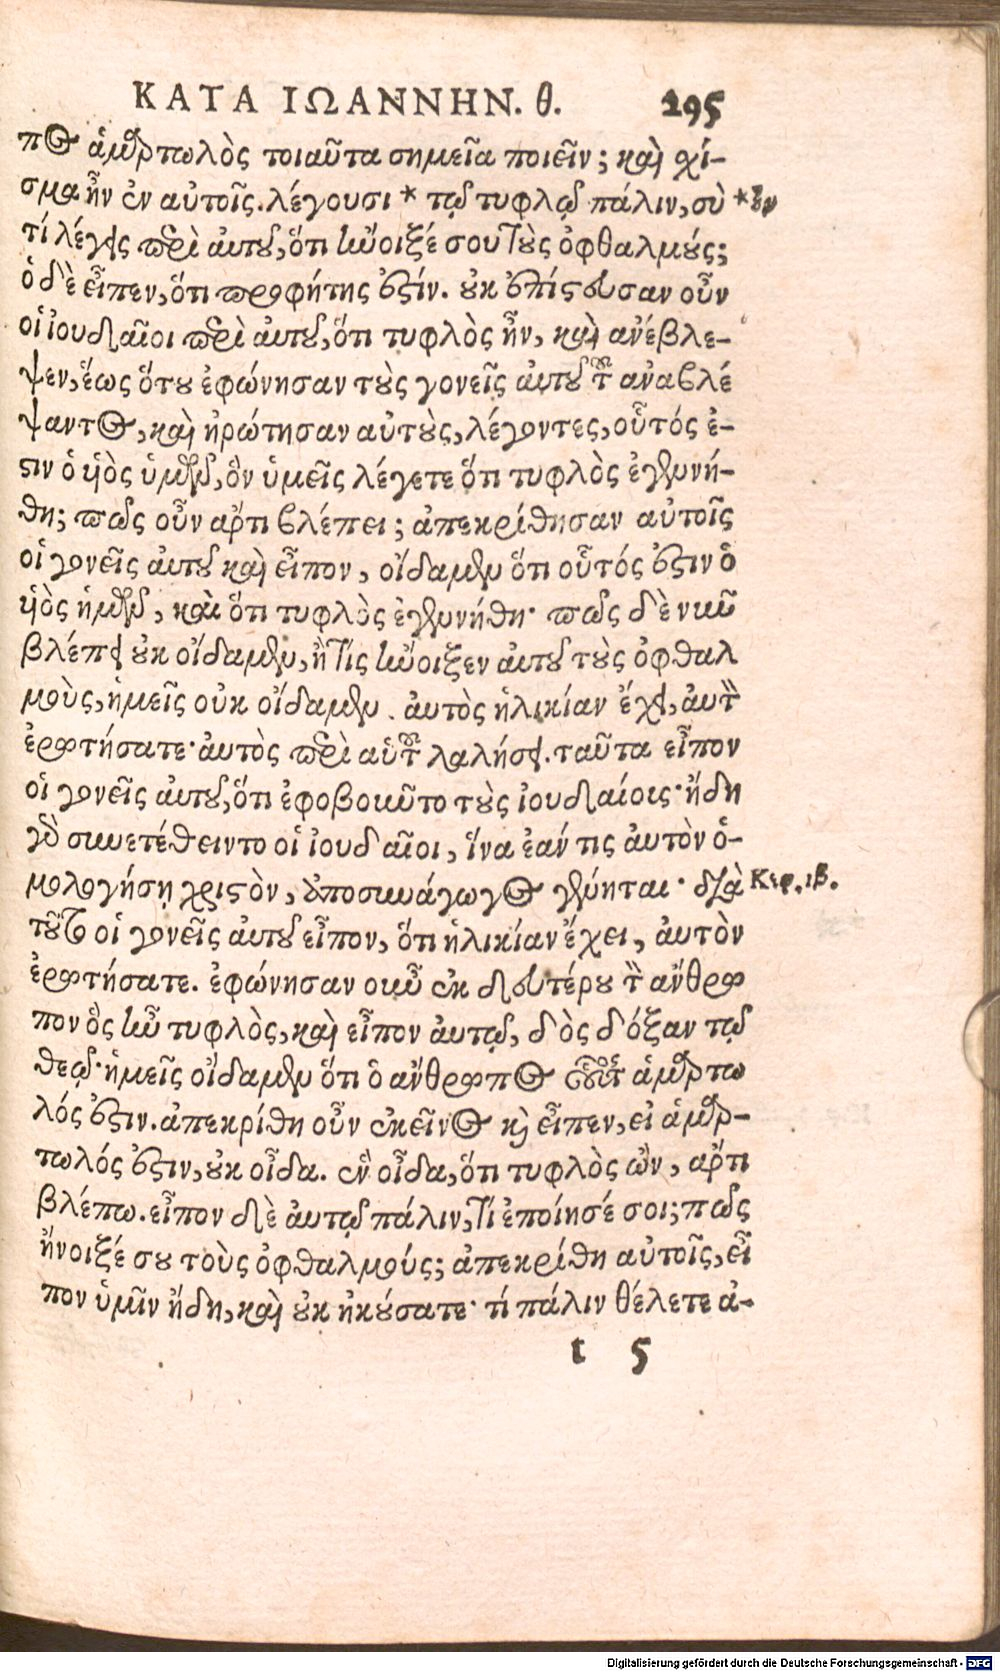 ΚΑΤΑ ΙΩΑΝΝΗΝ. θ. 295
πος ἁμαρτωλὸς τοιαῦτα σημεῖα ποιεῖν; καὶ χί-
σμα ἦν ἐν αὐτοῖς. λέγουσι * τῷ τυφλῷ πάλιν, σὺ * οὖν
τί λέγεις περὶ ἀυτοῦ, ὅτι ἤνοιξέ σου τοὺς ὀφθαλμούς;
ὁ δὲ εἶπεν, ὅτι προφήτης ἐστίν. οὐκ ἐπίστευσαν οὖν
οἱ ἰουδαῖοι περὶ ἀυτοῦ, ὅτι τυφλὸς ἦν, καὶ ἀνέβλε-
ψεν, ἕως ὅτου ἐφώνησαν τοὺς γονεῖς ἀυτοῦ τοῦ ἀναβλέ
ψαντος, καὶ ἠρώτησαν αὐτοὺς, λέγοντες, οὗτός ἐ-
στιν ὁ υἱὸς ὑμῶν, ὃν ὑμεῖς λέγετε ὅτι τυφλὸς ἐγεννή-
θη; πῶς οὖν ἄρτι βλέπει; ἀπεκρίθησαν αὐτοῖς
οἱ γονεῖς ἀυτοῦ καὶ εἶπον, οἴδαμεν ὅτι οὗτός ἐστιν ὁ
υἱὸς ἡμῶν, καὶ ὅτι τυφλὸς ἐγεννήθη· πῶς δὲ νῦν
βλέπει οὐκ οἴδαμεν, ἢ τίς ἤνοιξεν ἀυτοῦ τοὺς ὀφθαλ
μοὺς, ἡμεῖς οὐκ οἴδαμεν. ἀυτὸς ἡλικίαν ἔχει, ἀυτὸν
ἐρωτήσατε· ἀυτὸς περὶ αὑτοῦ λαλήσει. ταῦτα εἶπον
οἱ γονεῖς ἀυτοῦ, ὅτι ἐφοβοῦντο τοὺς ἰουδαίους· ἤδη
γὰρ συνετέθειντο οἱ ἰουδαῖοι, ἵνα ἐάν τις ἀυτὸν ὁ-
μολογήσῃ χριστὸν, ἀποσυνάγωγος γένηται· διὰ Κεφ. ιβ.
τοῦτο οἱ γονεῖς ἀυτοῦ εἶπον, ὅτι ἡλικίαν ἔχει, ἀυτὸν
ἐρωτήσατε. ἐφώνησαν οὖν ἐκ δευτέρου τὸν ἄνθρω
πον ὃς ἦν τυφλὸς, καὶ εἶπον ἀυτῷ, δὸς δόξαν τῷ
θεῷ· ἡμεῖς οἴδαμεν ὅτι ὁ ἄνθρωπος οὗτος ἁμαρτω
λός ἐστιν. ἀπεκρίθη οὖν ἐκεῖνος καὶ εἶπεν, εἰ ἁμαρ-
τωλός ἐστιν, οὐκ οἶδα. ἓν οἶδα, ὅτι τυφλὸς ὢν, ἄρτι
βλέπω. εἶπον δὲ ἀυτῷ πάλιν, τί ἐποίησέ σοι; πῶς
ἤνοιξέ σου τοὺς ὀφθαλμούς; ἀπεκρίθη αὐτοῖς, εἶ
πον ὑμῖν ἤδη, καὶ οὐκ ἠκούσατε· τί πάλιν θέλετε ἀ-
t 5
Digitalisierung gefördert durch die Deutsche Forschungsgemeinschaft - DFG